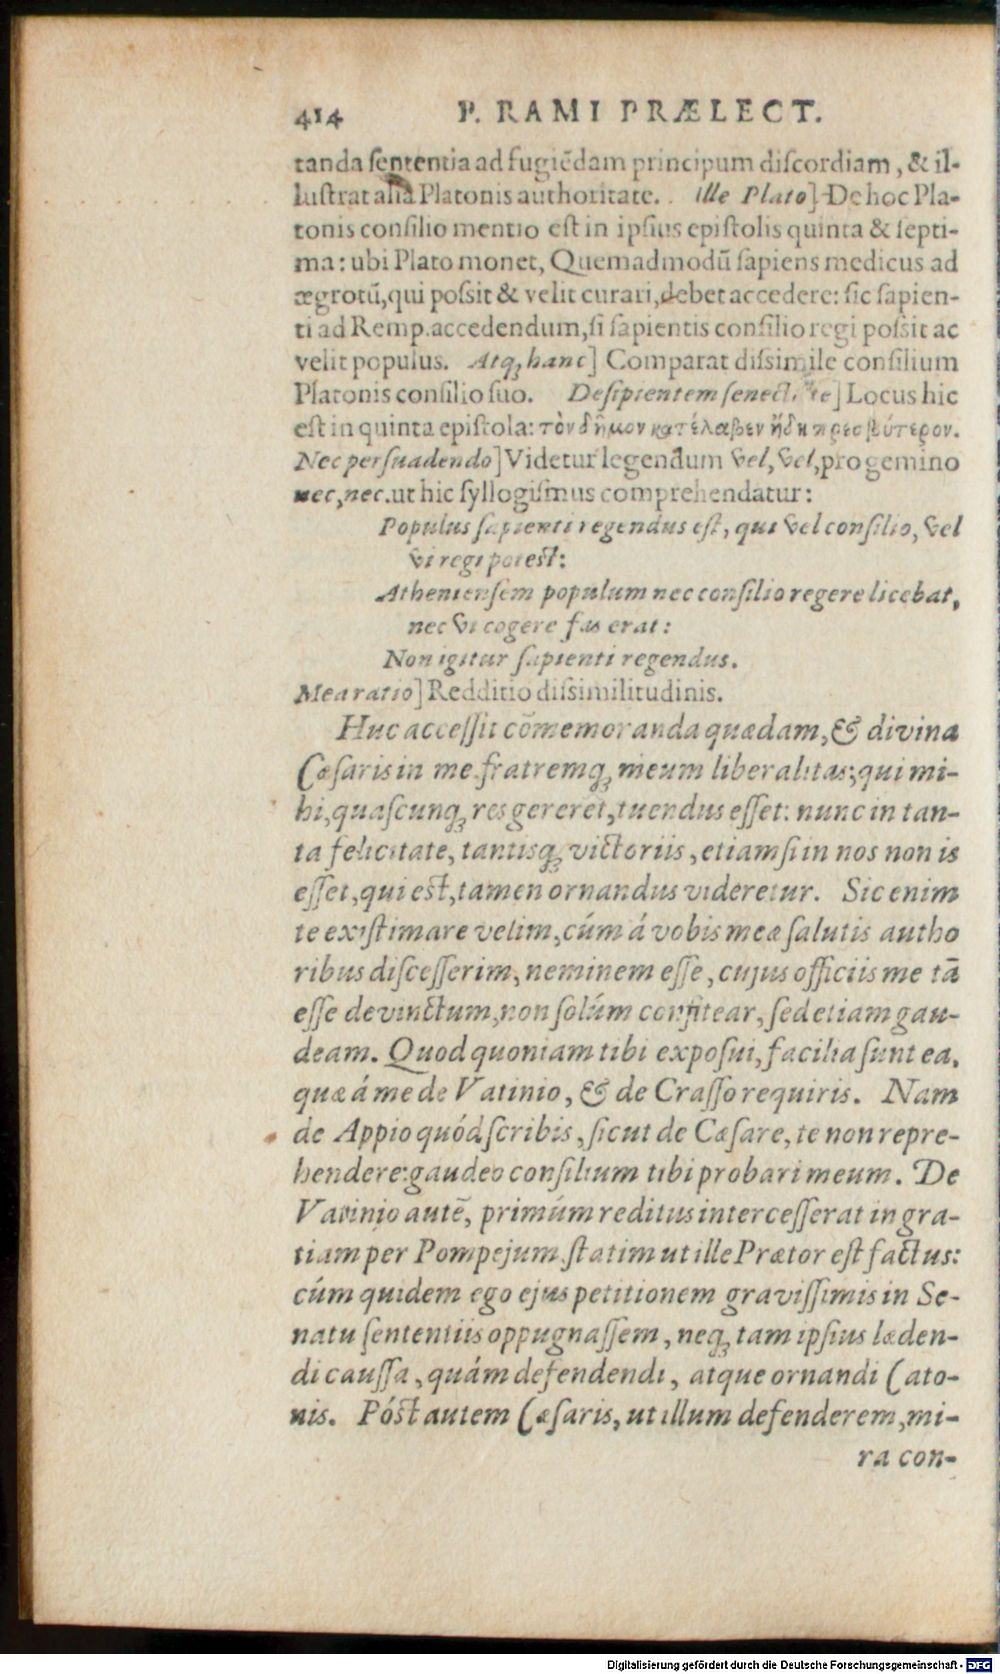 414 P. RAMI PRÆLECT.
tanda sententia ad fugiēdam principum discordiam, & il-
lustrat alia Platonis authoritate. ille Plato] De hoc Pla-
tonis consilio mentio est in ipsius epistolis quinta & septi-
ma: ubi Plato monet, Quemadmodū sapiens medicus ad
ægrotū, qui possit & velit curari, debet accedere: sic sapien-
ti ad Remp. accedendum, si sapientis consilio regi possit ac
velit populus. Atq; hanc] Comparat dissimile consilium
Platonis consilio suo. Desipientem senectute] Locus hic
est in quinta epistola: τὸν δῆμον κατέλαβεν ἤδη πρεσβύτερον.
Nec persuadendo] Videtur legendum vel, vel, pro gemino
nec, nec. ut hic syllogismus comprehendatur:
Populus sapienti regendus est, qui vel consilio, vel
vi regi potest:
Atheniensem populum nec consilio regere licebat,
nec vi cogere fas erat:
Non igitur sapienti regendus.
Mea ratio] Redditio dissimilitudinis.
Huc accessit cōmemoranda quædam, & divina
Cæsaris in me fratremq; meum liberalitas; qui mi-
hi, quascunq; res gereret, tuendus esset: nunc in tan-
ta felicitate, tantisq; victoriis, etiamsi in nos non is
esset, qui est, tamen ornandus videretur. Sic enim
te existimare velim, cúm á vobis meæ salutis autho
ribus discesserim, neminem esse, cujus officiis me tā
esse devinctum, non solúm confitear, sed etiam gau-
deam. Quod quoniam tibi exposui, facilia sunt ea,
quæ á me de Vatinio, & de Crasso requiris. Nam
de Appio quód scribis, sicut de Cæsare, te non repre-
hendere: gaudeo consilium tibi probari meum. De
Vatinio autē, primúm reditus intercesserat in gra-
tiam per Pompejum, statim ut ille Prætor est factus:
cúm quidem ego ejus petitionem gravissimis in Se-
natu sententiis oppugnassem, neq; tam ipsius læden-
di caussa, quám defendendi, atque ornandi Cato-
nis. Póst autem Cæsaris, ut illum defenderem, mi-
ra con-
Digitalisierung gefördert durch die Deutsche Forschungsgemeinschaft - DFG